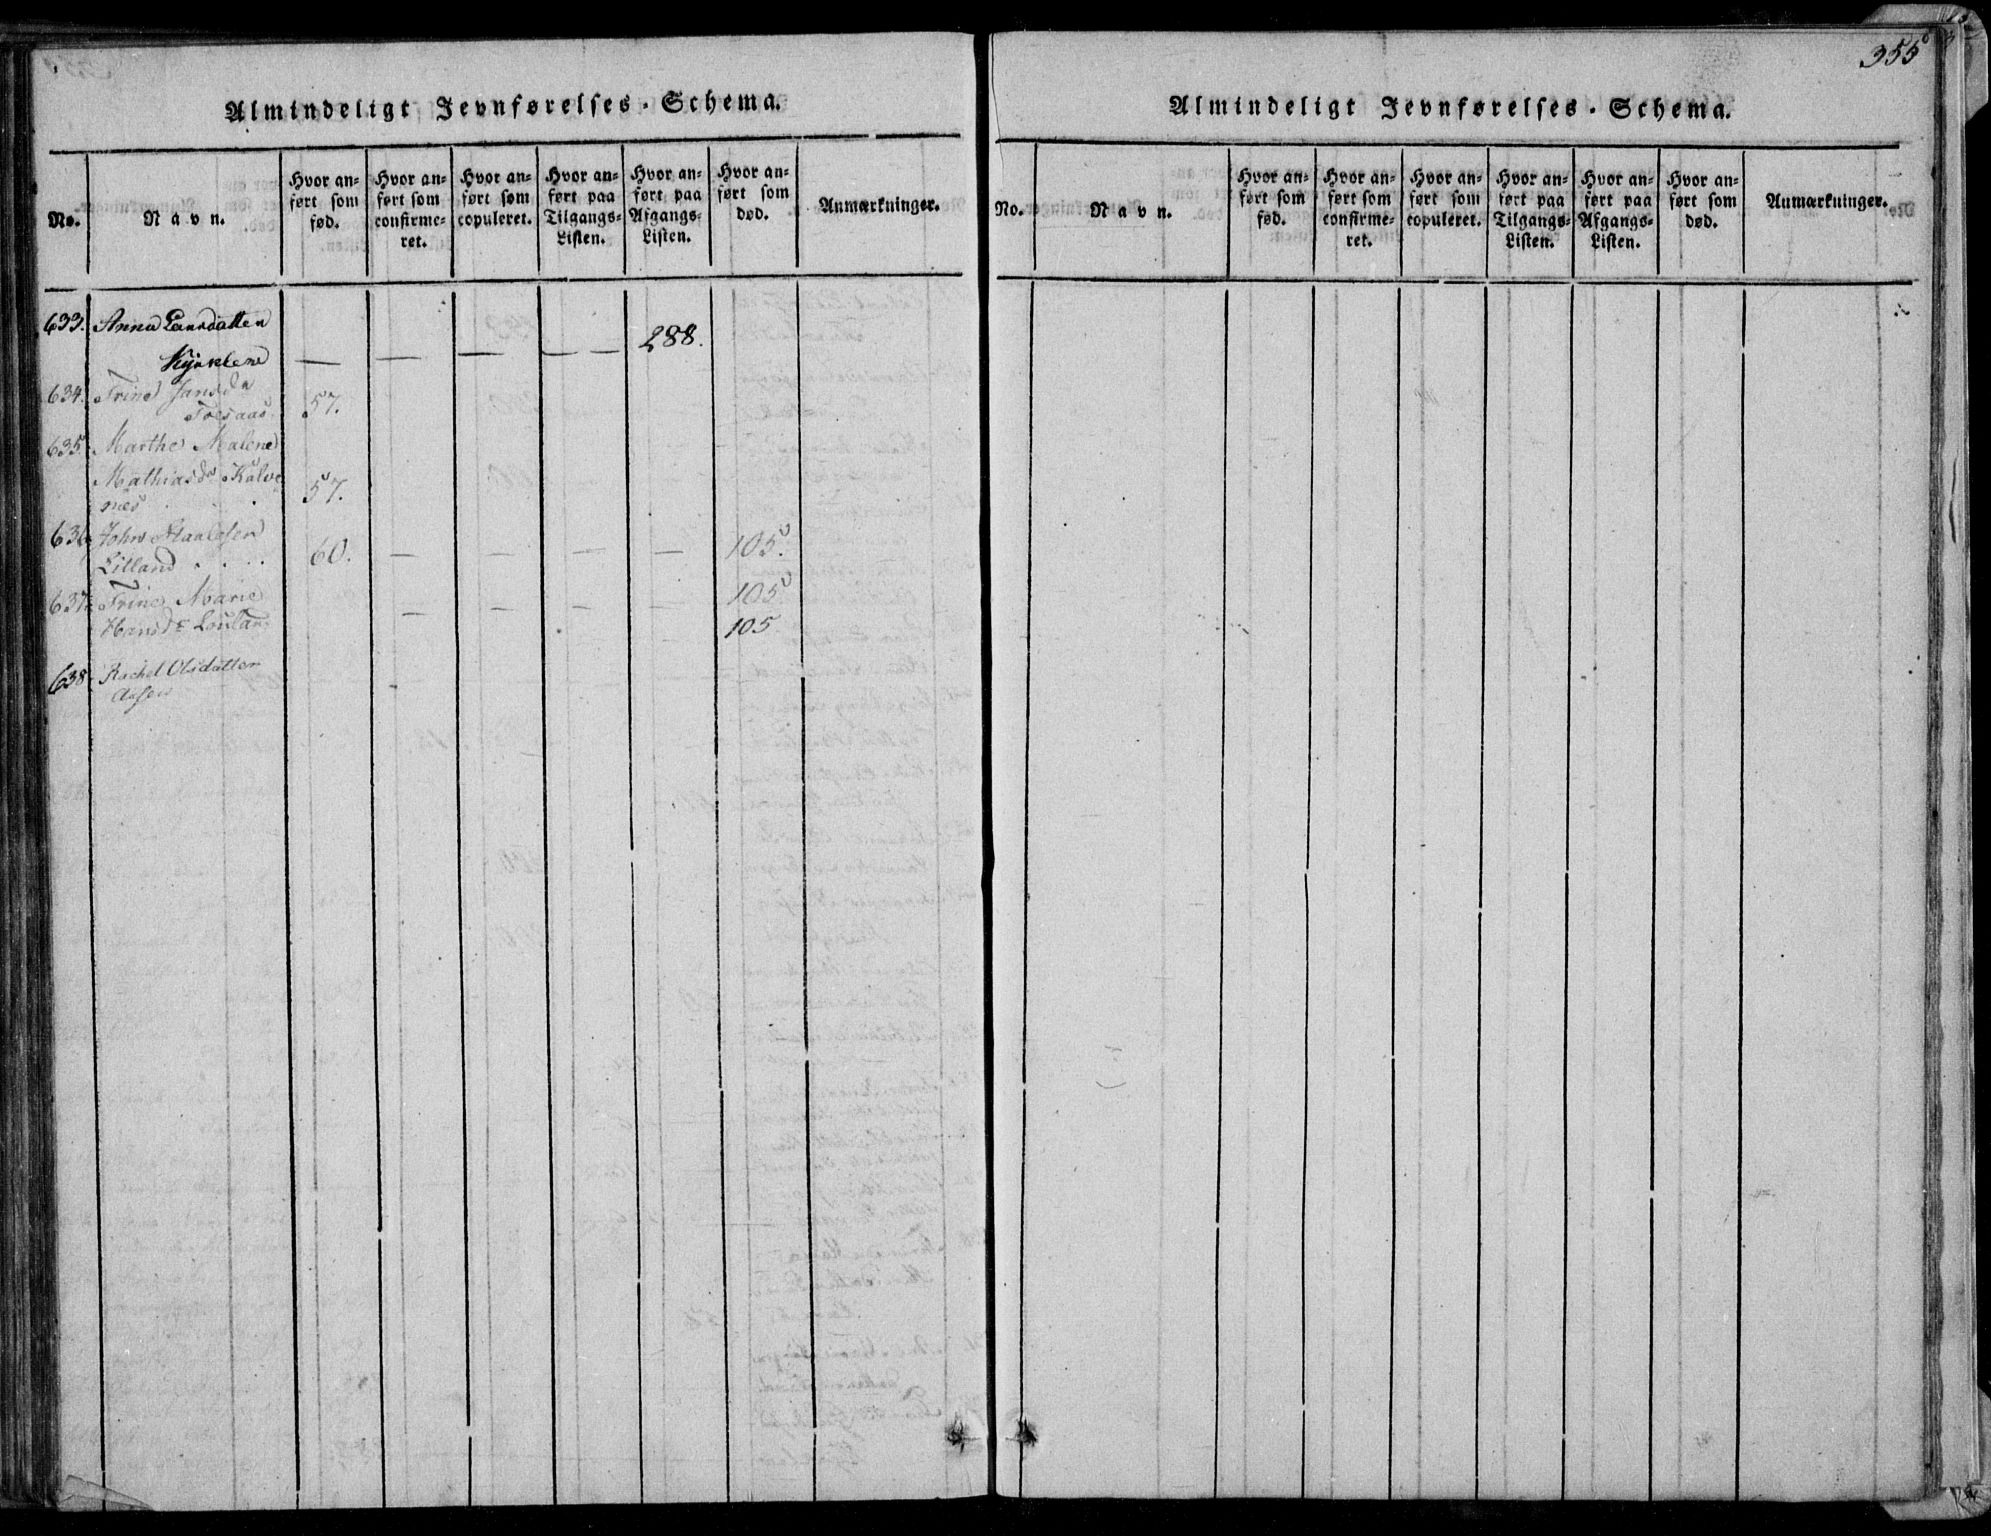 355
Almindeligt Jevnførelses-Schema.
No. Navn. Hvor anført som fød. Hvor anført som confirmeret. Hvor anført som copuleret. Hvor anført paa Tilgangs-Listen. Hvor anført paa Afgangs-Listen. Hvor anført som død. Anmærkninger.
633. Anna Larsdatten
Kyrklene — — — — — 288.
634. Trine Jansdr
Toesaas. 57.
635. Marthe Malene
Mathiasdr Kalve
næs 57.
636 John Staalesen
Litland . . . . 60. — — — — 105.
637. Trine Marie 105
Hansdr — — — —
105
638. Rachel Olsdatter
Aasen
Almindeligt Jevnførelses-Schema.
No. Navn. Hvor anført som fød. Hvor anført som confirmeret. Hvor anført som copuleret. Hvor anført paa Tilgangs-Listen. Hvor anført paa Afgangs-Listen. Hvor anført som død. Anmærkninger.